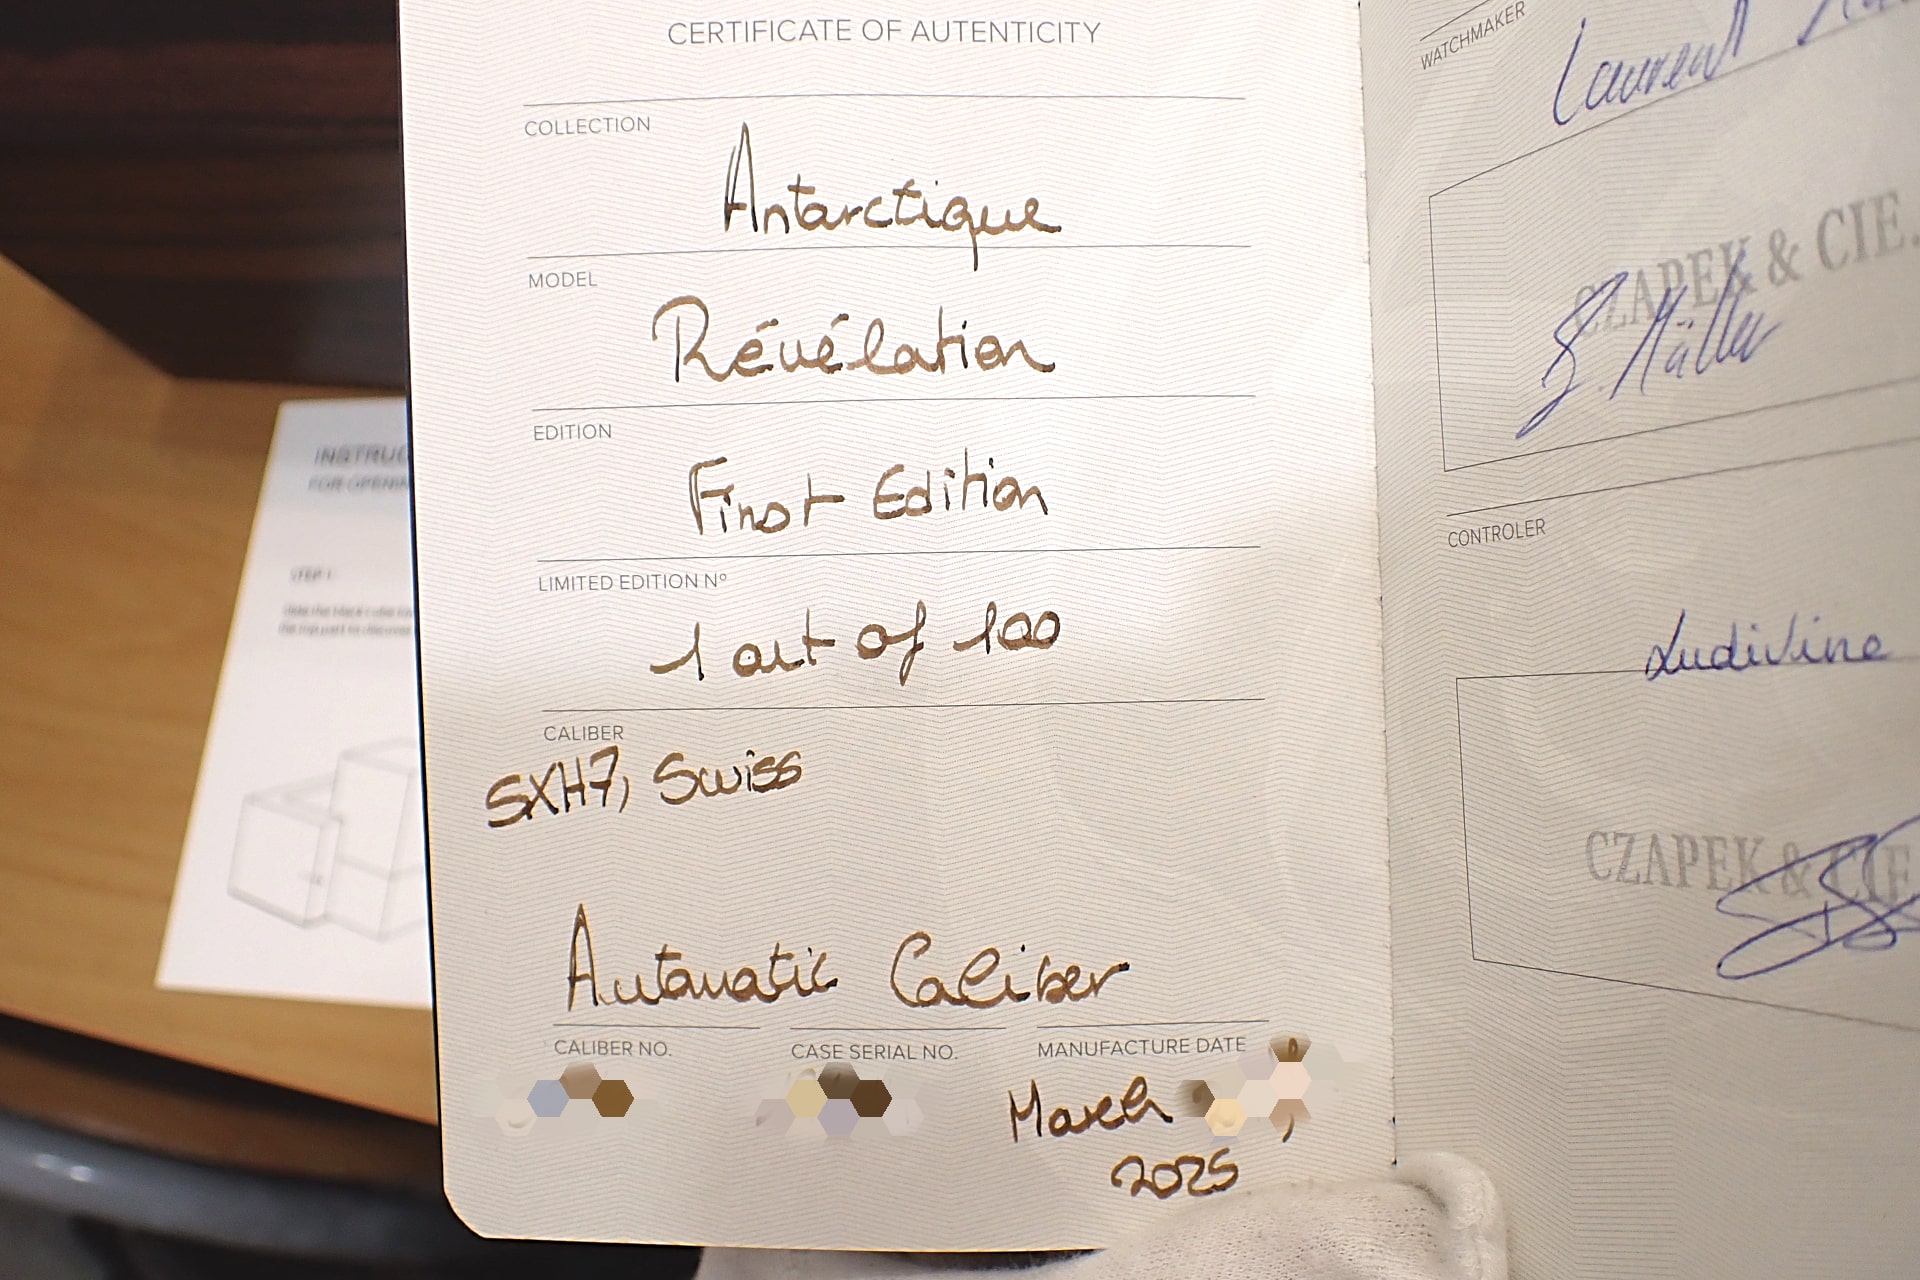 CERTIFICATE OF AUTENTICITY
COLLECTION
Antarctique
MODEL
Révélation
EDITION
First Edition
LIMITED EDITION Nº
1 out of 100
CALIBER
SXH7, Swiss
Automatic Caliber
CALIBER NO.
CASE SERIAL NO.
MANUFACTURE DATE
March
2025
WATCHMAKER
Laurent
CZAPEK & CIE.
S. Müller
CONTROLER
Ludivine
CZAPEK & CIE
INSTRUC
FOR OPENIN
STEP 1